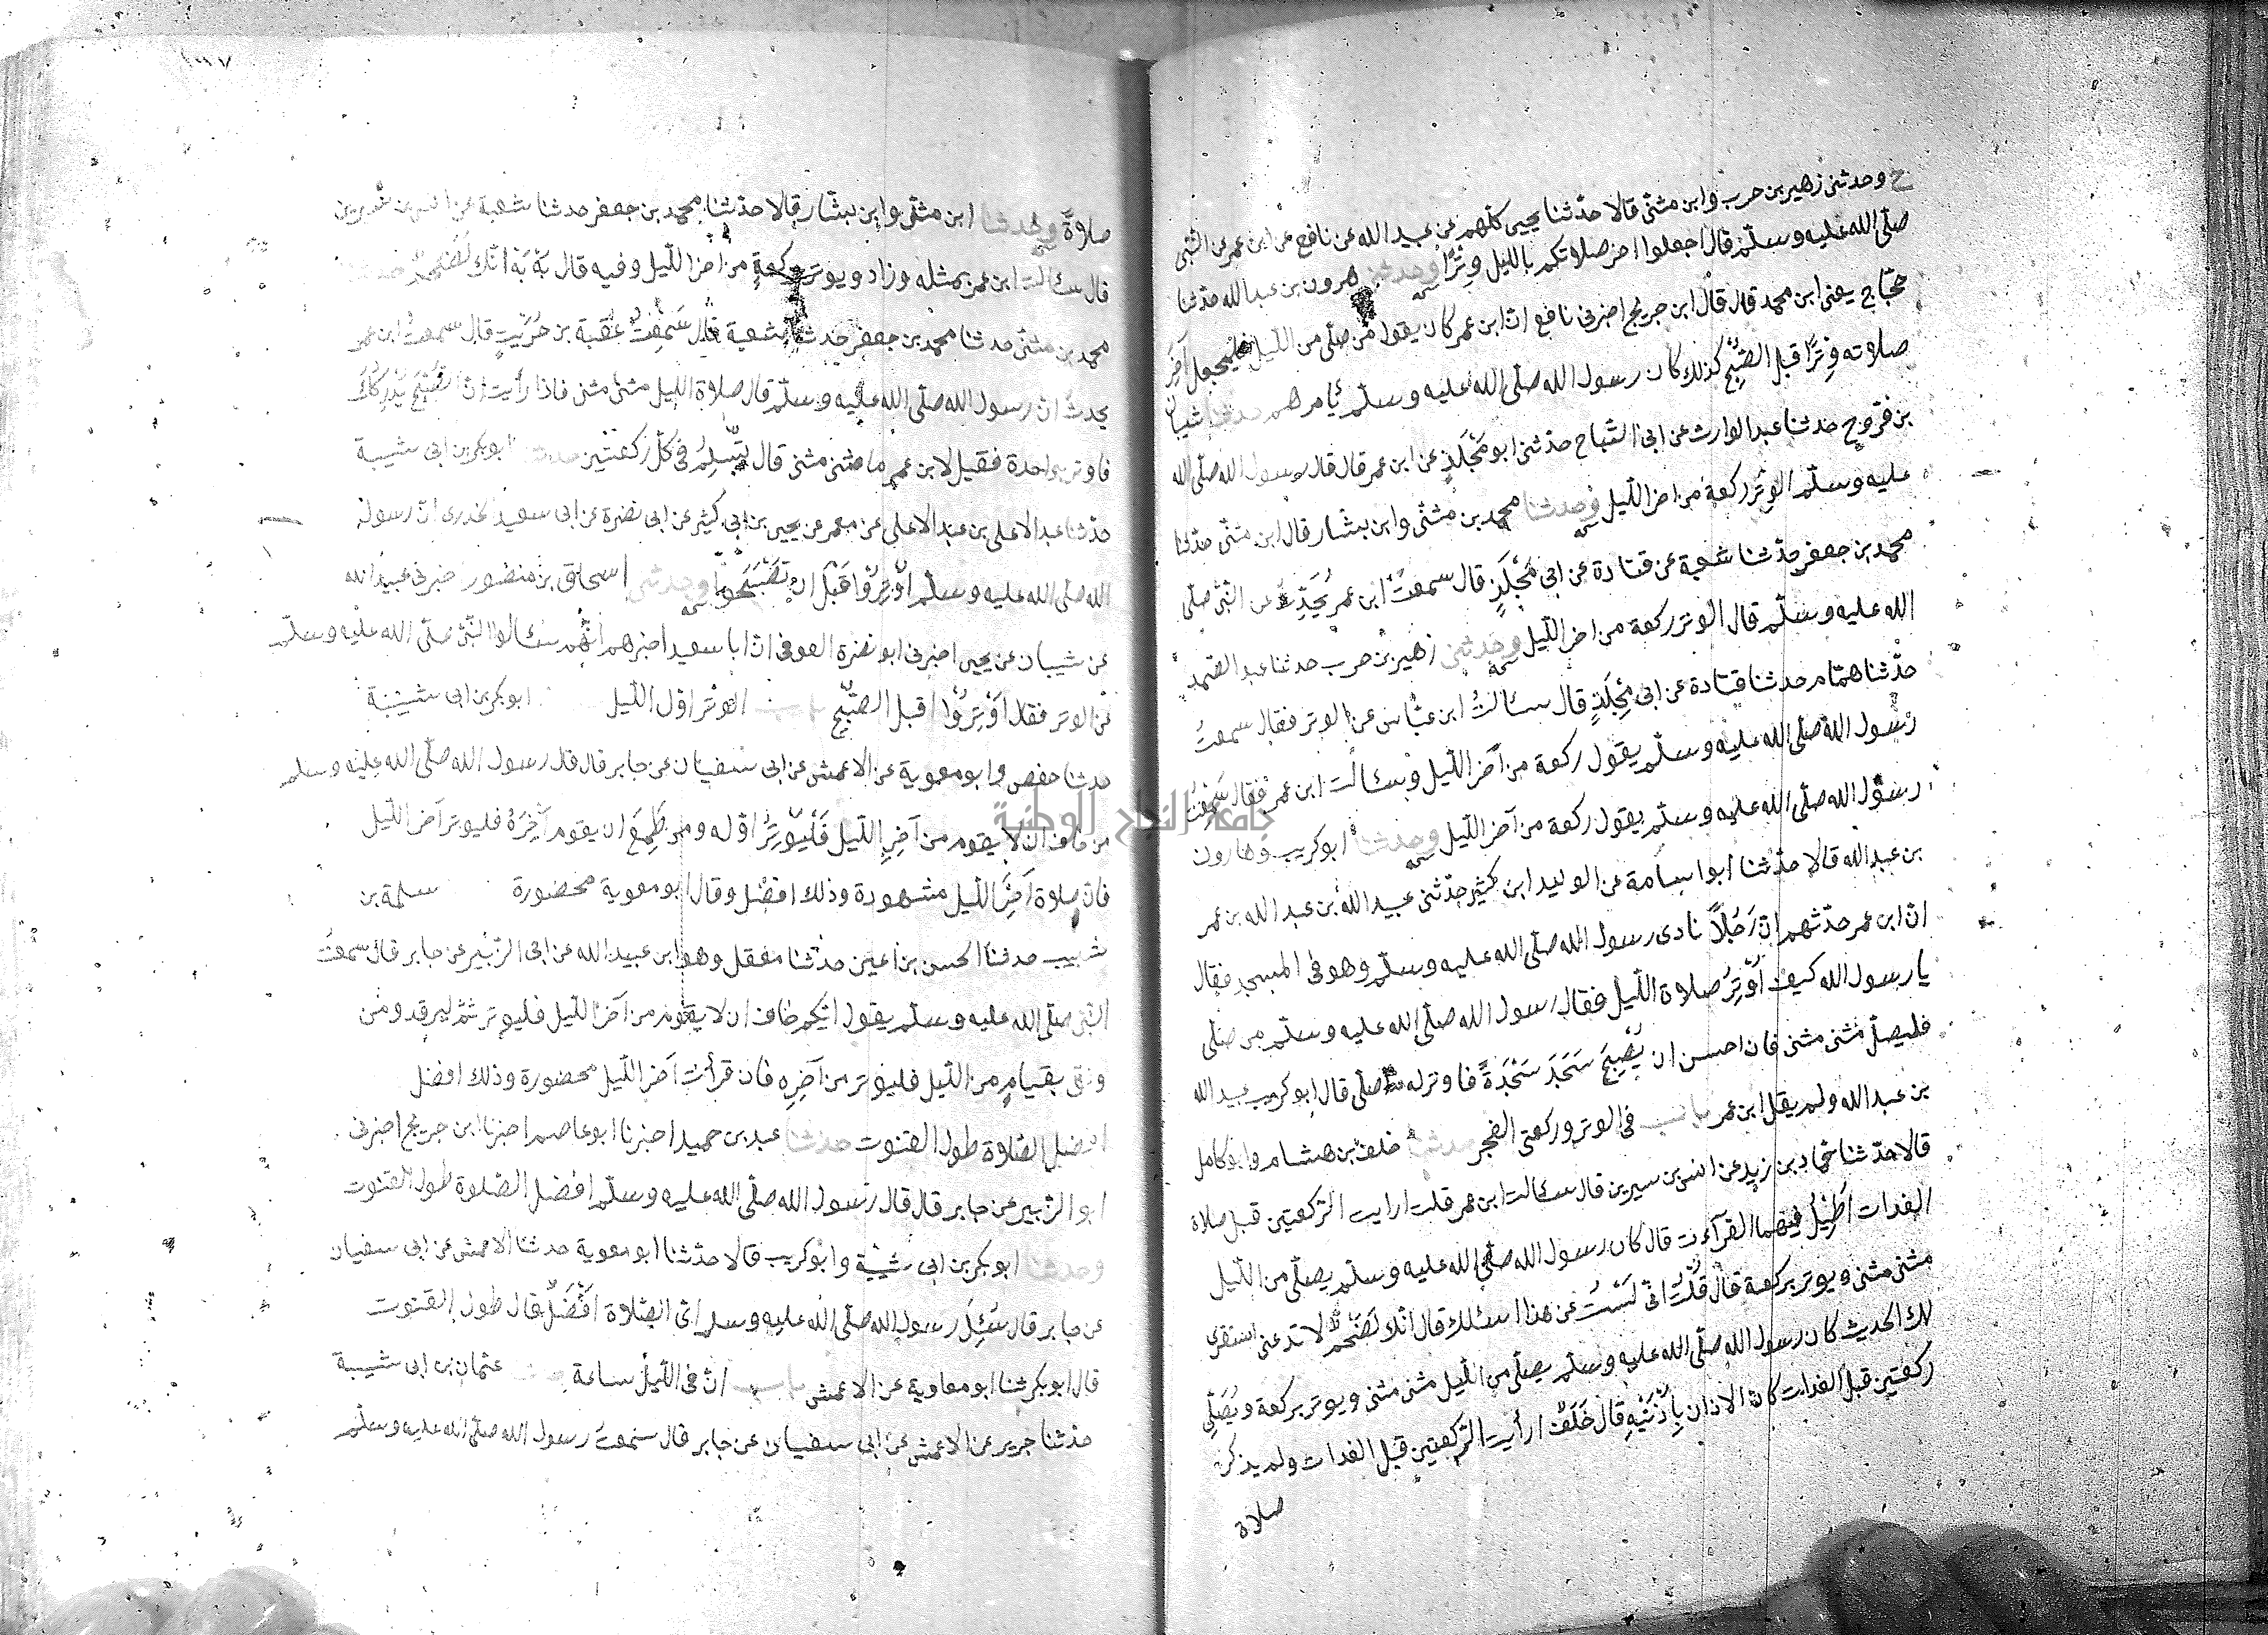 ح وحدثنى زهير بن حرب وابن مثنى قالا حدثنا يحيى كلهم عن عبيد الله عن نافع عن ابن عمر عن النبى
صلى الله عليه وسلم قال اجعلوا اخر صلاتكم بالليل وترا وحدثنى هرون بن عبد الله حدثنا
حجاج يعنى ابن محمد قال قال ابن جريج اخبرنى نافع ان ابن عمر كان يقول من صلى من الليل فليجعل آخر
صلاته وترا قبل الصبح كذلك كان رسول الله صلى الله عليه وسلم يأمرهم حدثنا شيبان
بن فروح حدثنا عبد الوارث عن ابى التياح حدثنى ابو مجلز عن ابن عمر قال قال رسول الله صلى الله
عليه وسلم الوتر ركعة من اخر الليل وحدثنا محمد بن مثنى وابن بشار قال ابن مثنى حدثنا
محمد بن جعفر حدثنا شعبة عن قتادة عن ابى مجلز قال سمعت ابن عمر يحدث عن النبى صلى
الله عليه وسلم قال الوتر ركعة من اخر الليل وحدثنى زهير بن حرب حدثنا عبد الصمد
حدثنا همام حدثنا قتادة عن ابى مجلز قال سئالت ابن عباس عن الوتر فقال سمعت
رسول الله صلى الله عليه وسلم يقول ركعة من آخر الليل وسئالت ابن عمر فقال سمعت
رسول الله صلى الله عليه وسلم يقول ركعة من آخر الليل وحدثنا ابو كريب وهارون
بن عبد الله قالا حدثنا ابو اسامة عن الوليد ابن كثير حدثنى عبيد الله بن عبد الله بن عمر
ان ابن عمر حدثهم ان رجلا نادى رسول الله صلى الله عليه وسلم وهو فى المسجد فقال
يا رسول الله كيف اوتر صلاة الليل فقال رسول الله صلى الله عليه وسلم من صلى
فليصل مثنى مثنى فان احسن ان يصبح سجد سجدة فاوتر له ما صلى قال ابو كريب عبيد الله
بن عبد الله ولم يقل ابن عمر باب فى الوتر وركعتى الفجر حدثنا خلف بن هشام وابو كامل
قالا حدثنا حماد بن زيد عن انس بن سيرين قال سئالت ابن عمر قلت ارايت الركعتين قبل صلاة
الغدات اطيل فيهما القرآءت قال كان رسول الله صلى الله عليه وسلم يصلى من الليل
مثنى مثنى ويوتر بركعة قال قلت انى لست عن هذا اسئلك قال انك لضخم لا تدعنى استقرى
لك الحديث كان رسول الله صلى الله عليه وسلم يصلى من الليل مثنى مثنى ويوتر بركعة ويصلى
ركعتين قبل الغدات كان الاذان باذنيه قال خلف ارأيت الركعتين قبل الغدات ولم يذكر
صلاة
صلاة وحدثنا ابن مثنى وابن بشار قالا حدثنا محمد بن جعفر حدثنا شعبة عن انس بن سيرين
قال سئالت ابن عمر بمثله وزاد ويوتر بركعة من اخر الليل وفيه قال به به انك لضخم حدثنا
محمد بن مثنى حدثنا محمد بن جعفر حدثنا شعبة قال سمعت عقبة بن حريث قال سمعت ابن عمر
يحدث ان رسول الله صلى الله عليه وسلم قال صلاة الليل مثنى مثنى فاذا رأيت ان الصبح يدركك
فاوتر بواحدة فقيل لابن عمر ما مثنى مثنى قال تسلم فى كل ركعتين حدثنا ابو بكر بن ابى شيبة
حدثنا عبد الاعلى بن عبد الاعلى عن معمر عن يحيى بن ابى كثير عن ابى نضرة عن ابى سعيد الخدرى ان رسول
الله صلى الله عليه وسلم اوتروا قبل ان تصبحوا وحدثنى اسحاق بن منصور اخبرنى عبيد الله
عن شيبان عن يحيى اخبرنى ابو نضرة العوفى ان ابا سعيد اخبرهم انهم سئالوا النبى صلى الله عليه وسلم
عن الوتر فقال اوتروا قبل الصبح باب الوتر اول الليل ابو بكر بن ابى شيبة
حدثنا حفص وابو معوية عن الاعمش عن ابى سفيان عن جابر قال قال رسول الله صلى الله عليه وسلم
من خاف ان لا يقوم من آخر الليل فليوتر اوله ومن طمع ان يقوم آخره فليوتر آخر الليل
فان صلوة آخر الليل مشهودة وذلك افضل وقال ابو معوية محضورة سلمة بن
شبيب حدثنا الحسن بن اعين حدثنا معقل وهو ابن عبيد الله عن ابى الزبير عن جابر قال سمعت
النبى صلى الله عليه وسلم يقول ايكم خاف ان لا يقوم من آخر الليل فليوتر ثم ليرقد ومن
وثق بقيام من الليل فليوتر من آخره فان قرأت آخر الليل محضورة وذلك افضل
افضل الصلاة طول القنوت حدثنا عبد بن حميد اخبرنا ابو عاصم اخبرنا ابن جريج اخبرنى
ابو الزبير عن جابر قال قال رسول الله صلى الله عليه وسلم افضل الصلوة طول القنوت
وحدثنا ابو بكر بن ابى شيبة وابو كريب قالا حدثنا ابو معوية حدثنا الاعمش عن ابى سفيان
عن جابر قال سئل رسول الله صلى الله عليه وسلم اى الصلاة افضل قال طول القنوت
قال ابو بكر ثنا ابو معاوية عن الاعمش باب ان فى الليل ساعة عثمان بن ابى شيبة
حدثنا جرير عن الاعمش عن ابى سفيان عن جابر قال سمعت رسول الله صلى الله عليه وسلم
جامعة النجاح الوطنية